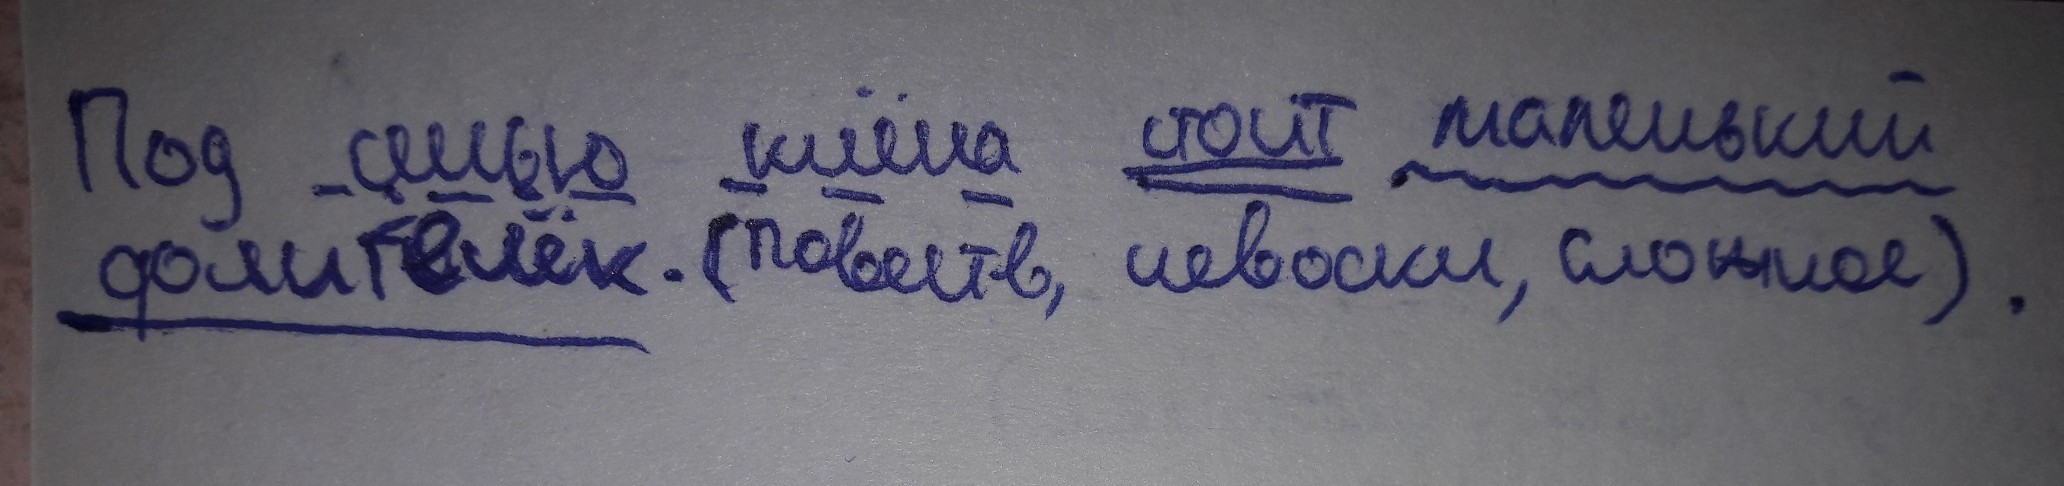 Под сенью клёна стоит маленький
фонитёлёк. (повеств, невоскл, сложное).